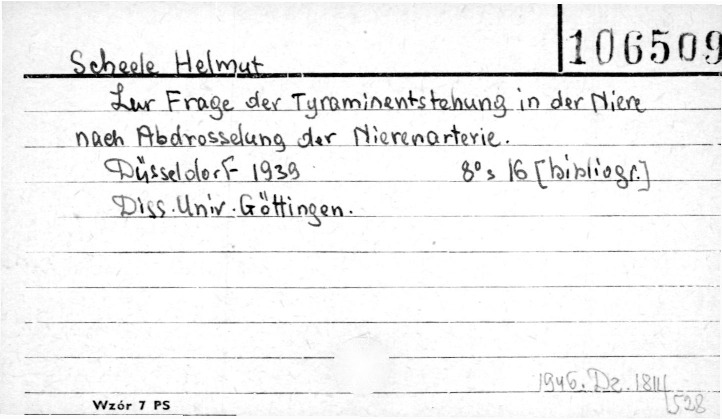 106509
Scheele Helmut
Zur Frage der Tyraminentstehung in der Niere
nach Abdrosselung der Nierenarterie.
Düsseldorf 1939 8° s 16 [bibliogr.]
Diss. Univ. Göttingen.
1946. Dz. 1811/
528
Wzór 7 PS